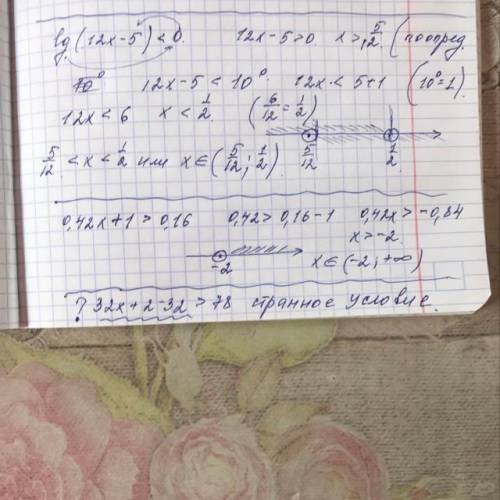 lg(12x-5)<0. 12x-5>0 x>5/2. (по опред.
10⁰ 12x-5<10⁰ 12x<5+1 (10⁰=1)
12x<6 x<1/2. (6/12=1/2)
5/12<x<1/2 или x∈(5/12; 1/2). 5/12 1/2
0,42x+1>0,16 0,42>0,16-1 0,42x>-0,84
x>-2.
-2 x∈(-2; +∞)
? 32x+2-32>78 странное условие.